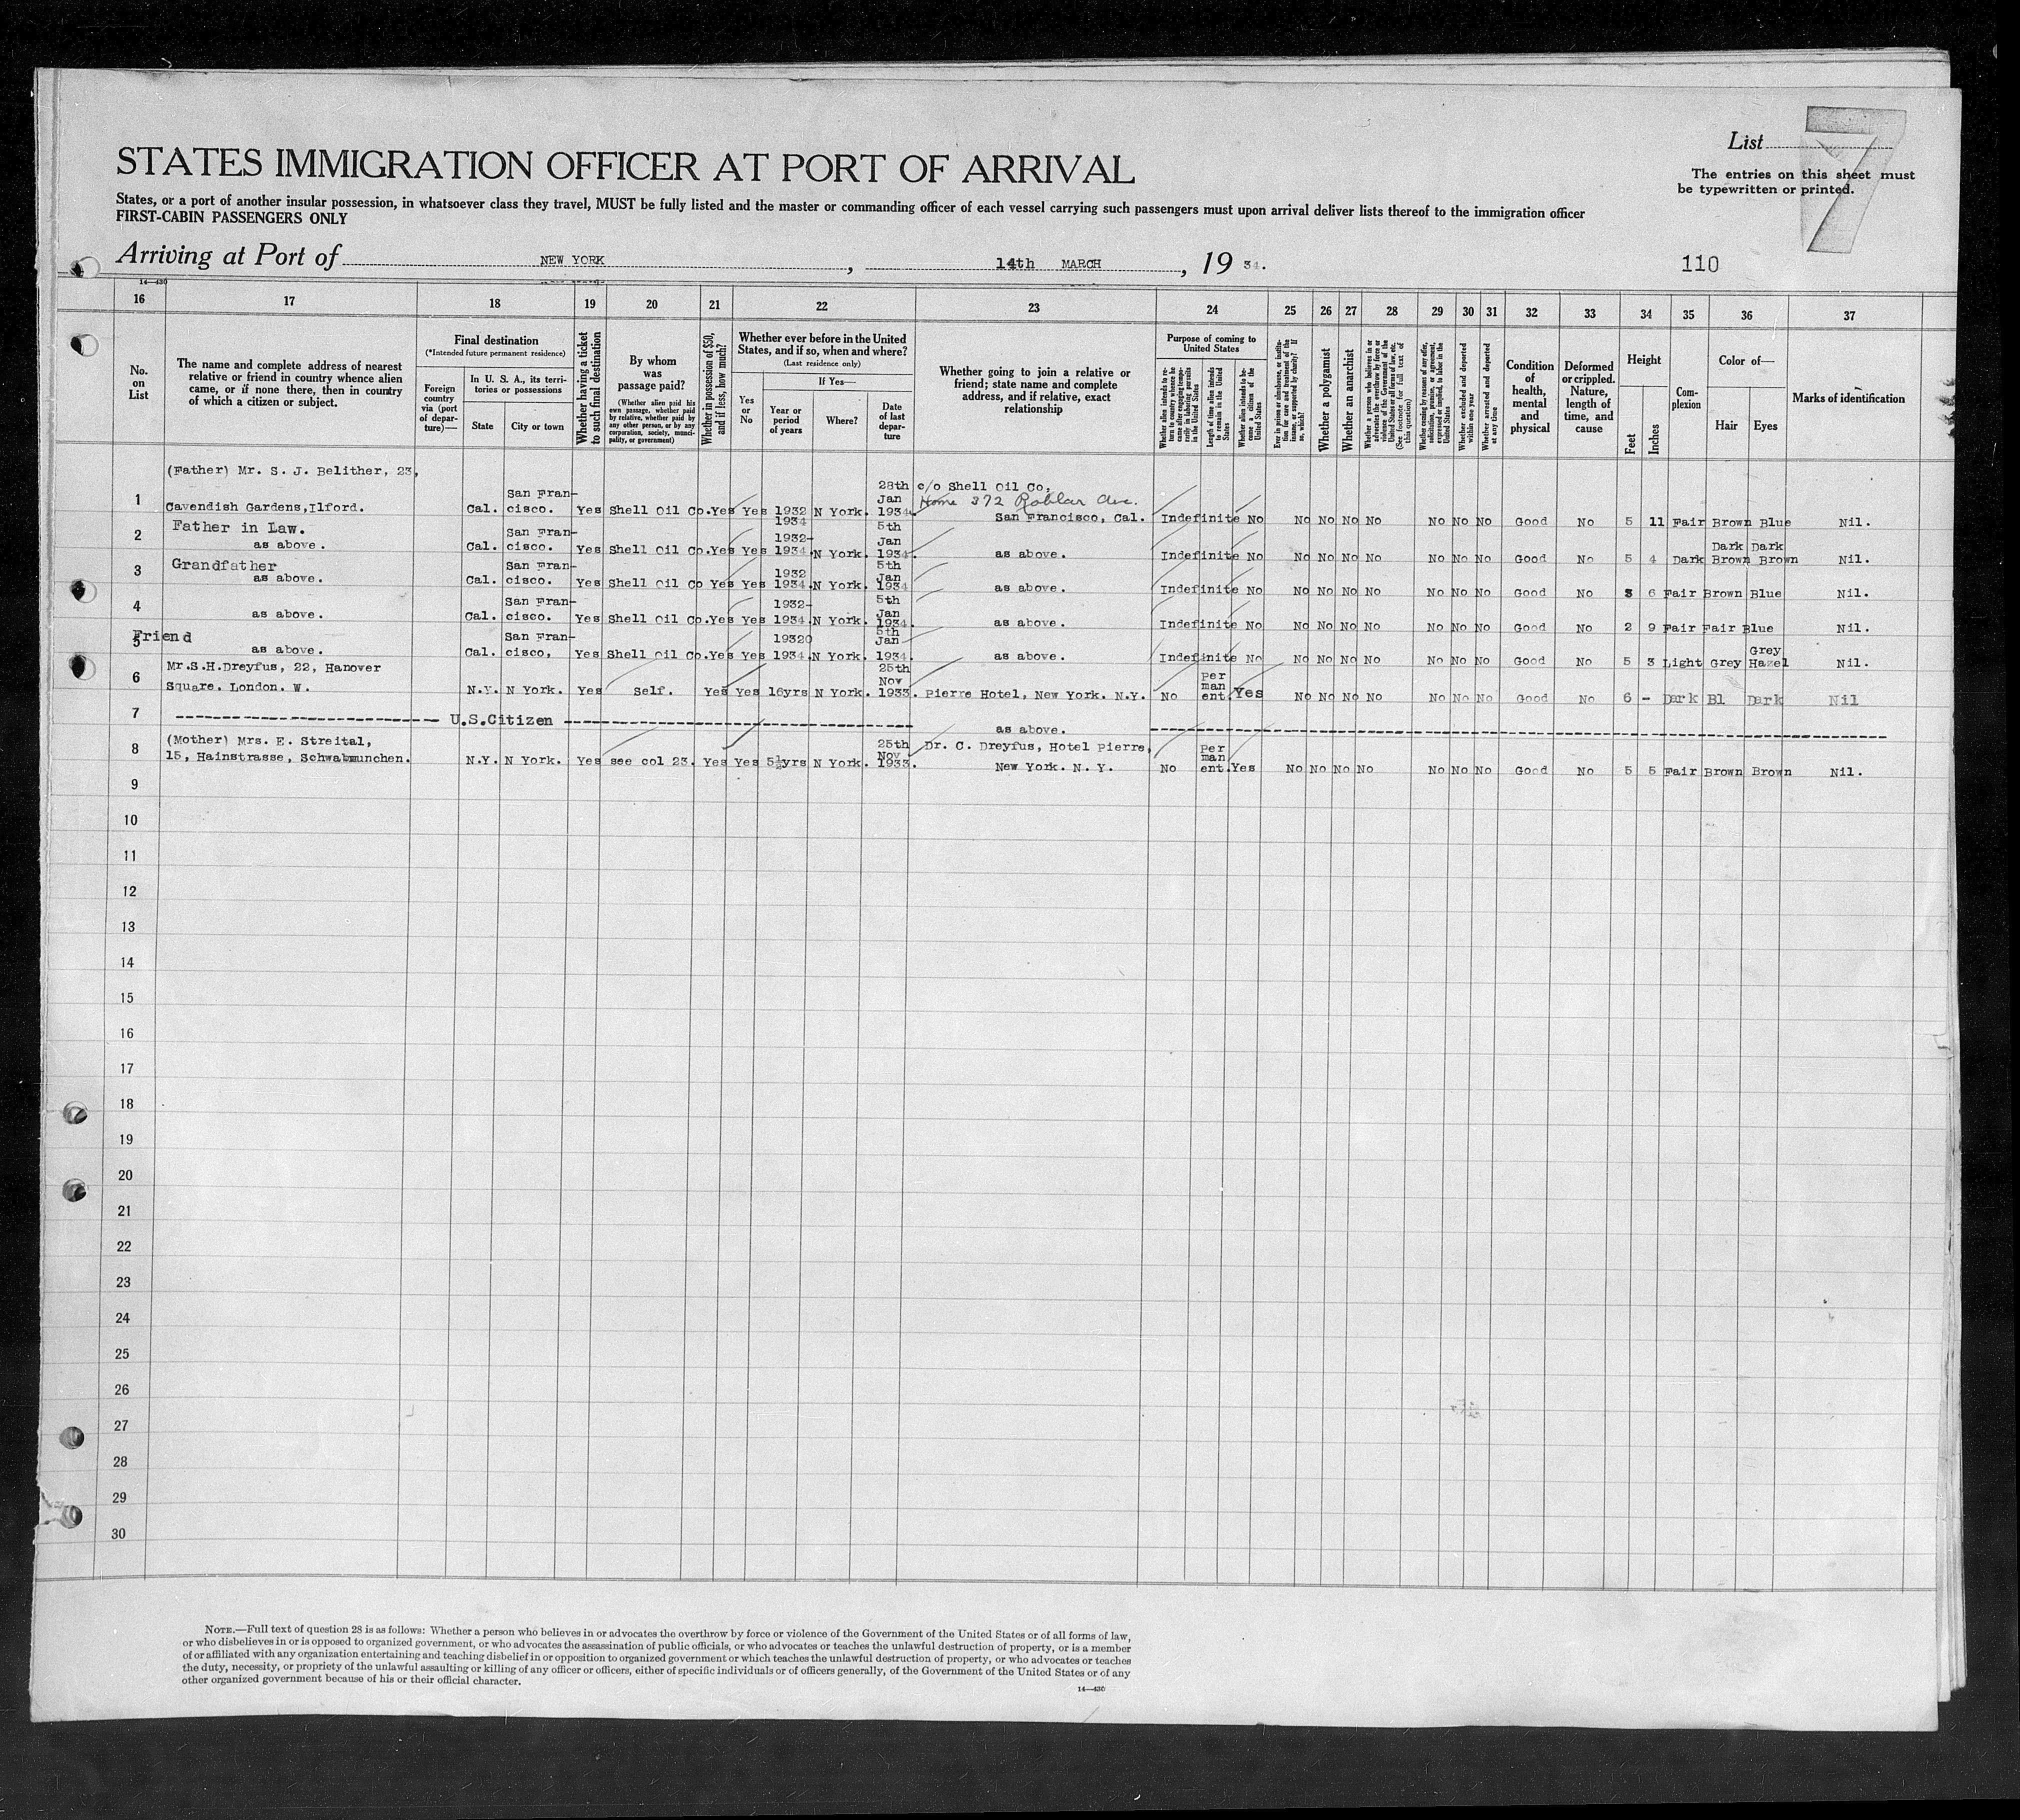 List 7
The entries on this sheet must
be typewritten or printed.
STATES IMMIGRATION OFFICER AT PORT OF ARRIVAL
States, or a port of another insular possession, in whatsoever class they travel, MUST be fully listed and the master or commanding officer of each vessel carrying such passengers must upon arrival deliver lists thereof to the immigration officer
FIRST-CABIN PASSENGERS ONLY
Arriving at Port of NEW YORK, 14th MARCH, 19 34.
110
14—430
16 17 18 19 20 21 22 23 24 25 26 27 28 29 30 31 32 33 34 35 36 37
No. on List
The name and complete address of nearest relative or friend in country whence alien came, or if none there, then in country of which a citizen or subject.
Final destination
(*Intended future permanent residence)
Foreign country via (port of departure)—
In U. S. A., its territories or possessions
State
City or town
Whether having a ticket to such final destination
By whom was passage paid?
(Whether alien paid his own passage, whether paid by relative, whether paid by any other person, or by any corporation, society, municipality, or government)
Whether in possession of $50, and if less, how much?
Whether ever before in the United States, and if so, when and where?
(Last residence only)
Yes or No
If Yes—
Year or period of years
Where?
Date of last departure
Whether going to join a relative or friend; state name and complete address, and if relative, exact relationship
Purpose of coming to United States
Whether alien intends to return to country whence he came after engaging temporarily in laboring pursuits in the United States
Length of time alien intends to remain in the United States
Whether alien intends to become a citizen of the United States
Ever in prison or almshouse, or institution for care and treatment of the insane, or supported by charity? If so, which?
Whether a polygamist
Whether an anarchist
Whether a person who believes in or advocates the overthrow by force or violence of the Government of the United States or all forms of law, etc. (See footnote for full text of this question)
Whether coming by reasons of any offer, solicitation, promise, or agreement, expressed or implied, to labor in the United States
Whether excluded and deported within one year
Whether arrested and deported at any time
Condition of health, mental and physical
Deformed or crippled. Nature, length of time, and cause
Height
Feet
Inches
Complexion
Color of—
Hair
Eyes
Marks of identification
(Father) Mr. S. J. Belither, 23,
1 Cavendish Gardens, Ilford. Cal. San Fran- cisco. Yes Shell Oil Co. Yes Yes 1932 1934 N York. 28th Jan 1934. c/o Shell Oil Co, Home 372 Roblar Ave. San Francisco, Cal. Indefinite No No No No No No No No Good No 5 11 Fair Brown Blue Nil.
2 Father in Law. as above. Cal. San Fran- cisco. Yes Shell Oil Co. Yes Yes 1932- 1934. N York. 5th Jan 1934. as above. Indefinite No No No No No No No No Good No 5 4 Dark Dark Brown Dark Brown Nil.
3 Grandfather as above. Cal. San Fran- cisco. Yes Shell Oil Co Yes Yes 1932 1934. N York. 5th Jan 1934 as above. Indefinite No No No No No No No No Good No 3 6 Fair Brown Blue Nil.
4 as above. Cal. San Fran- cisco. Yes Shell Oil Co. Yes Yes 1932- 1934. N York. 5th Jan 1934. as above. Indefinite No No No No No No No No Good No 2 9 Fair Fair Blue Nil.
5 Friend as above. Cal. San Fran- cisco, Yes Shell Oil Co. Yes Yes 19320 1934. N York. 5th Jan 1934. as above. Indefinite No No No No No No No No Good No 5 3 Light Grey Grey Hazel Nil.
Mr.S.H.Dreyfus, 22, Hanover
6 Square. London. W. N.Y. N York. Yes Self. Yes Yes 16yrs N York. 25th Nov 1933. Pierre Hotel, New York. N.Y. No Per man ent. Yes No No No No No No No Good No 6 - Dark Bl Dark Nil
7 U.S.Citizen as above.
(Mother) Mrs. E. Streital,
8 15, Hainstrasse, Schwabmunchen. N.Y. N York. Yes see col 23. Yes Yes 5½yrs N York. 25th Nov. 1933. Dr. C. Dreyfus, Hotel Pierre, New York. N. Y. No Per man ent. Yes No No No No No No No Good No 5 5 Fair Brown Brown Nil.
9
10
11
12
13
14
15
16
17
18
19
20
21
22
23
24
25
26
27
28
29
30
NOTE.—Full text of question 28 is as follows: Whether a person who believes in or advocates the overthrow by force or violence of the Government of the United States or of all forms of law,
or who disbelieves in or is opposed to organized government, or who advocates the assassination of public officials, or who advocates or teaches the unlawful destruction of property, or is a member
of or affiliated with any organization entertaining and teaching disbelief in or opposition to organized government or which teaches the unlawful destruction of property, or who advocates or teaches
the duty, necessity, or propriety of the unlawful assaulting or killing of any officer or officers, either of specific individuals or of officers generally, of the Government of the United States or of any
other organized government because of his or their official character.
14—430